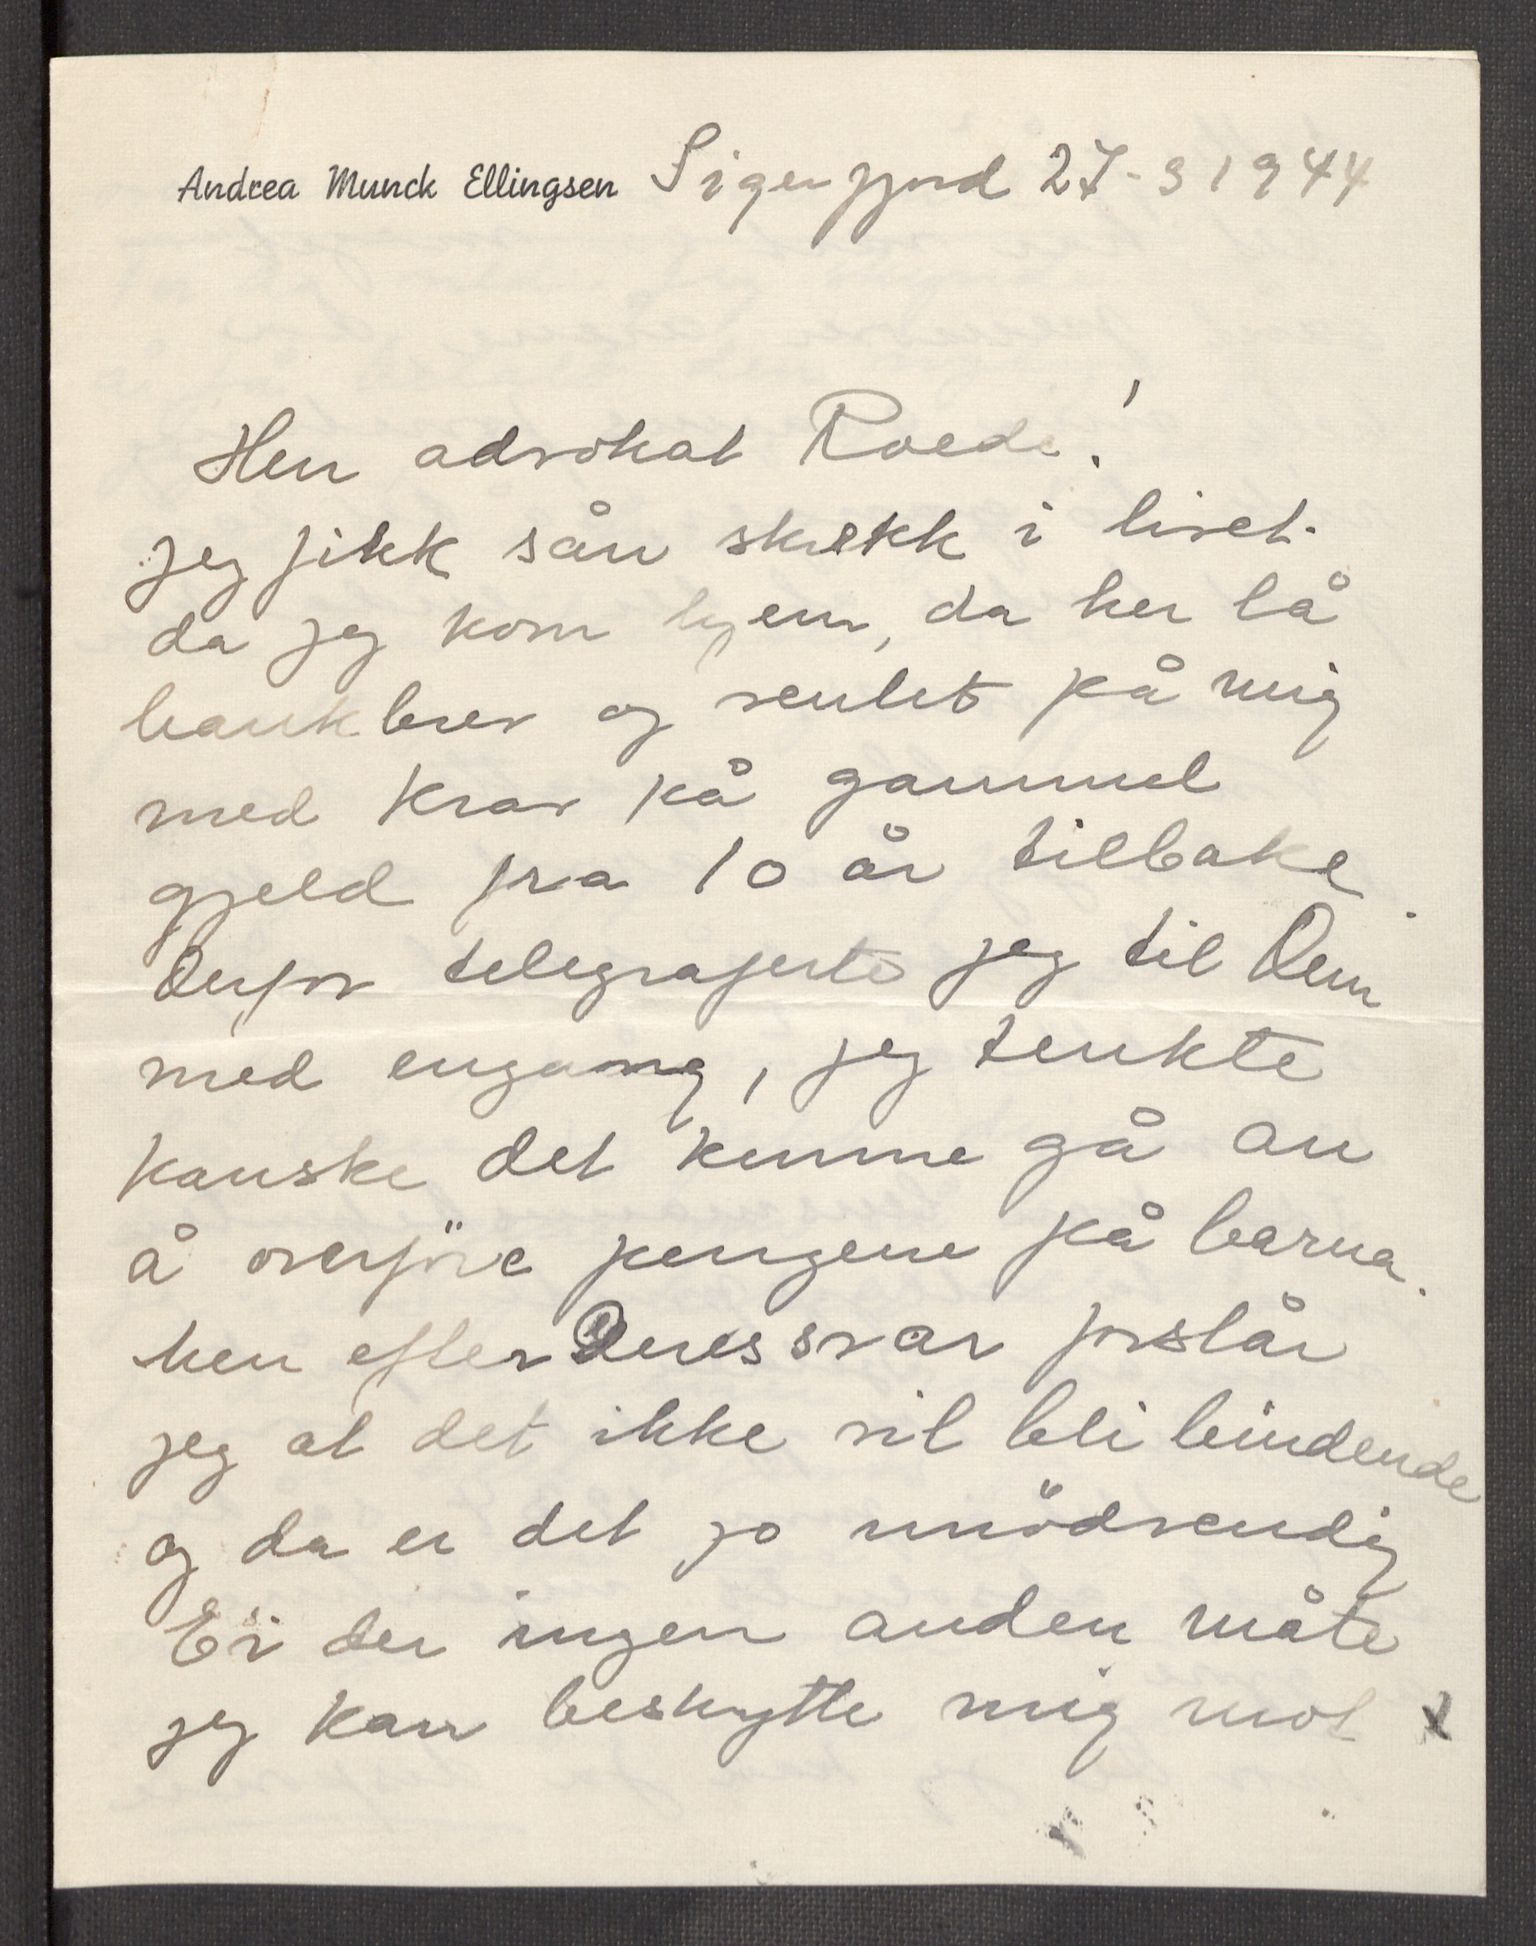 Andrea Munck Ellingsen Sigerfjord 27-3 1944
Herr advokat Roede!
jeg fikk sån skrekk i livet
da jeg kom hjem, da her lå
bankbrev og ventet på mig
med krav på gammel
gjeld fra 10 år tilbake.
Derfor telegraferte jeg til Dem
med engang, jeg tenkte
kanske det kunne gå an
å overföre pengene på barna.
Men efter Deres svar forstår
jeg at det ikke vil bli bindende
og da er det jo unödvendig
Er der ingen anden måte
jeg kan beskytte mig mot